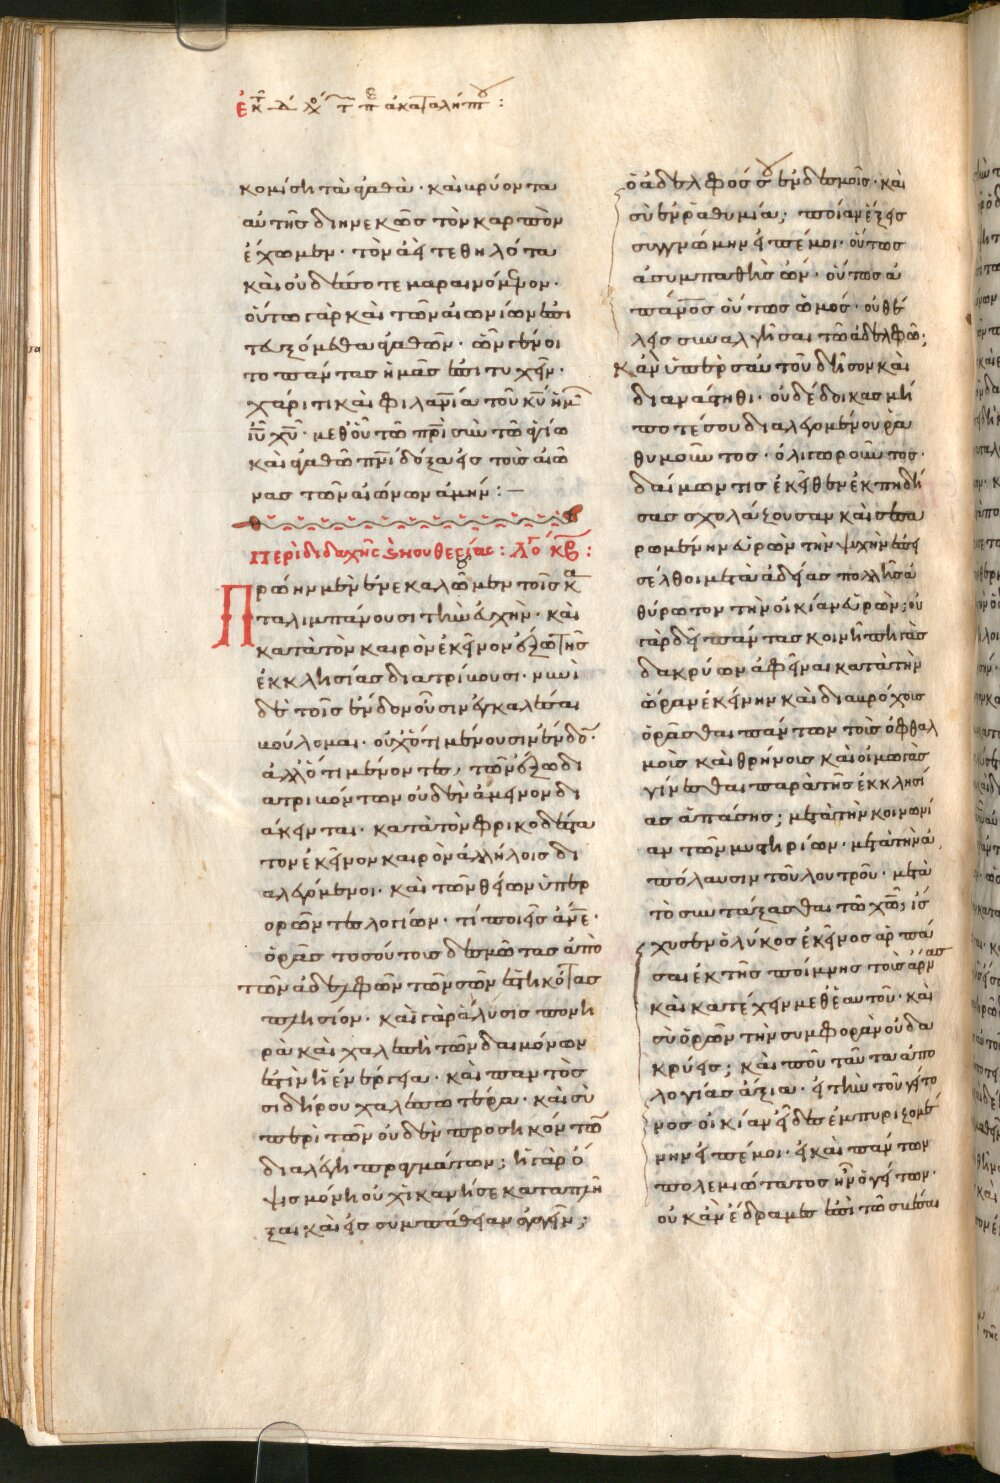 κομίσῃ τὰ ἀγαθά · καὶ βρύοντα
αὐτῆς διηνεκῶς τὸν καρπὸν
ἔχωμεν · τὸν ἀεὶ τεθηλότα
καὶ οὐδέποτε μαραινόμενον ·
οὕτω γὰρ καὶ τῶν αἰωνίων ἐπι
τευξόμεθα ἀγαθῶν · ὧν γένοι
το πάντας ἡμᾶς ἐπιτυχεῖν ·
χάριτι καὶ φιλανία τοῦ κυ ἡμ
ιυ χυ · μεθ οὗ τῶ πρι σὺν τῶ ἁγίω
καὶ ἀγαθῶ πνι δόξα εἰς τοὺς αἰῶ
νας τῶν αἰώνων ἀμήν : —
Περὶ διδαχῆς καὶ νουθεσίας : Λό κβ :
Πρώην μὲν ἐνεκαλοῦμεν τοῖς κα
ταλιμπάνουσι τὴν εὐχὴν · καὶ
κατὰ τὸν καιρὸν ἐκεῖνον ἔξω τῆς
ἐκκλησίας διατρίβουσι · νυνὶ
δὲ τοῖς ἔνδον οὖσιν ἐγκαλέσαι
βούλομαι · οὐχ ὅτι μένουσιν ἔνδο ·
ἀλλ ὅτι μένοντες, τῶν ἔξω δι
ατριβόντων οὐδὲν ἄμεινον δι
άκεινται · κατὰ τὸν φρικωδέστα
τον ἐκεῖνον καιρὸν ἀλλήλοις δι
αλεγόμενοι · καὶ τῶν θείων ὑπερ
ορῶντες λογίων · τί ποιεῖς ἄνε ·
ὁρᾶς τοσούτους δεσμώτας ἀπὸ
τῶν ἀδελφῶν τῶν σῶν ἑστηκότας
πλησίον · καὶ γὰρ ἅλυσις πονη
ρὰ καὶ χαλεπὴ τῶν δαιμόνων
ἐστὶν ἡ ἐνέργεια · καὶ παντὸς
σιδήρου χαλεπωτέρα · καὶ σὺ
περὶ τῶν οὐδὲν προσηκόντω
διαλέγη πραγμάτων; ἡ γὰρ ὄ
ψις μόνη οὐχ ἱκανή σε καταπλῆ
ξαι καὶ εἰς συμπάθειαν ἀγαγεῖν;
ὁ ἀδελφός σου ἐν δεσμοῖς · καὶ
σὺ ἐν ῥαθυμία; ποίαν ἕξεις
συγγνώμην εἰπέ μοι · οὕτως
ἀσυμπαθὴς ὤν · οὕτως ἀ
πάνος οὕτως ὠμός · οὐ θέ
λεις συναλγῆσαι τῶ ἀδελφῶ;
Κἂν ὑπὲρ σαυτοῦ δεῖσον καὶ
διανάστηθι · οὐ δέδοικας μή
ποτέ σου διαλεγομένου ῥα
θυμοῦντος · ὀλιγωροῦντος ·
δαίμων τις ἐκεῖθεν ἐκπηδή
σας σχολάζουσαν καὶ σεσα
ρωμένην εὑρὼν τὴν ψυχὴν ἐπει
σέλθοι μετὰ ἀδείας πολλῆς ἀ
θύρωτον τὴν οἰκίαν εὑρών; οὐ
γὰρ δεῖ πάντας κοινῇ πηγὰς
δακρύων ἀφεῖναι κατὰ τὴν
ὥραν ἐκείνην καὶ διαβρόχους
ὁρᾶσθαι πάντων τοὺς ὀφθαλ
μοὺς καὶ θρήνους καὶ οἰμωγὰς
γίνεσθαι παρὰ τῆς ἐκκλησί
ας ἁπάσης; μετὰ τὴν κοινωνί
αν τῶν μυστηρίων · μετὰ τὴν ἀ
πόλαυσιν τοῦ λουτροῦ · μετὰ
τὸ συντάξασθαι τῶ χω; ἴσ
χυσεν ὁ λύκος ἐκεῖνος ἁρπά
σαι ἐκ τῆς ποίμνης τοὺς ἄρνας
καὶ κατέχειν μεθ ἑαυτοῦ · καὶ
σὺ ὁρῶν τὴν συμφορὰν οὐ δα
κρύεις; καὶ ποῦ ταῦτα ἀπο
λογίας ἄξια · εἰ τὴν τοῦ γείτο
νος οἰκίαν εἶδες ἐμπυριζομέ
νην εἰπέ μοι · εἰ καὶ πάντων
πολεμιώτατος ἦν ὁ γείτων ·
οὐκ ἂν ἔδραμες ἐπὶ τῶ σβέσαι